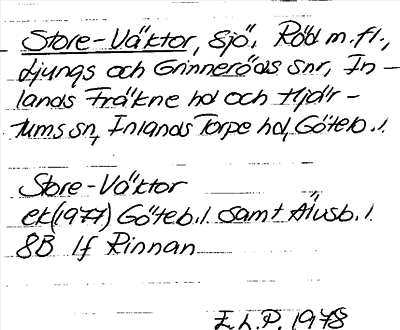 Store-Väktor, Sjö. Röd m.fl.,
Ljungs och Grinneröds snr, In-
lands Fräkne hd och Hjär-
tums sn, Inlands Torpe hd, Göteb.l.
Store-Väktor
ek (1977) Göteb.l. samt Älvsb.l.
8B 1f Rinnan
E.L.P. 1978